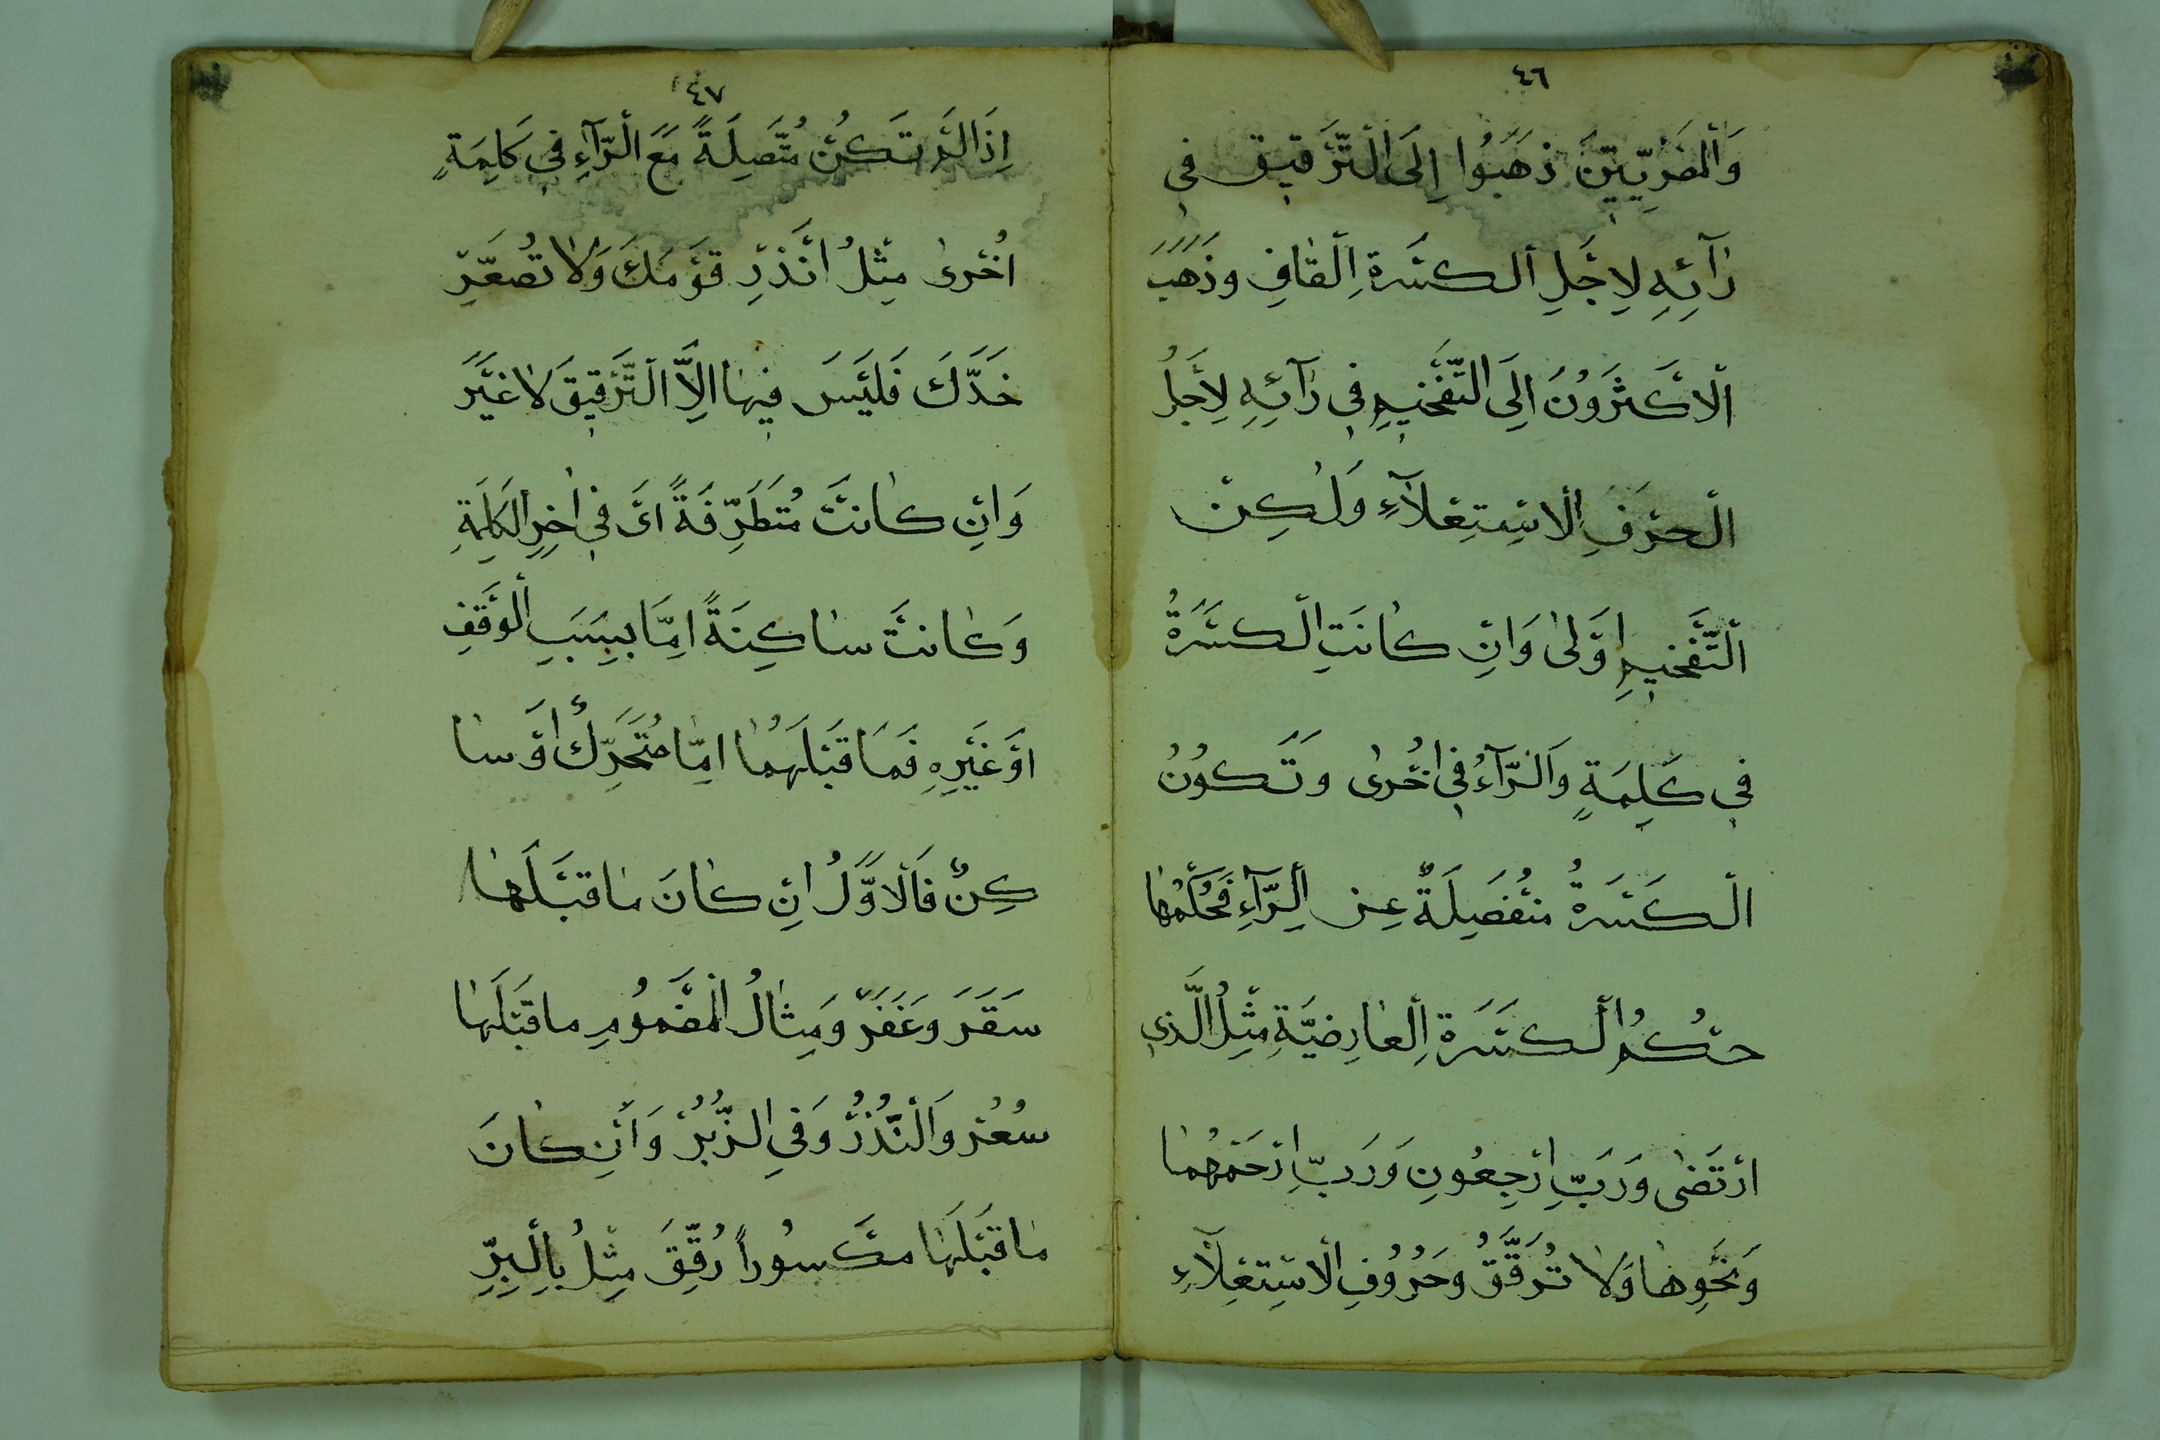 ٤٦
وَالْمِصْرِيّينَ ذَهَبُوا اِلَى التَّرْقِيقِ فِي
رَآئِهِ لِاَجْلِ الْكَسْرَةِ الْقَافِ وذَهَبَ
الْاَكْثَرُونَ اِلَى التَّفْخِيمِ فِى رَآئِهِ لِاَجْلِ
الْحَرْفِ الْاِسْتِعْلَآءِ وَلٰكِنْ
التَّفْخِيمِ اَوْلىٰ وَاِنْ كَانَتِ الْكَسْرَةُ
فِي كَلِمَةٍ وَالرَّآءُ فِي اُخْرىٰ وَتَكُونُ
الْكَسْرَةُ مُنْفَصِلَةً عَنِ الرَّآءِ فَحُكْمُهَا
حُكْمُ الْكَسْرَةِ الْعَارِضِيَّةِ مِثْلُ الَّذِي
ارْتَضٰى وَرَبِّ ارْجِعُونِ وَرَبِّ ارْحَمْهُمَا
وَنَحْوِهَا وَلَا تُرَقَّقُ وحُرُوفِ الْاِسْتِعْلَآءِ
٤٧
اِذَا لَمْ تَكُنْ مُتَّصِلَةً مَعَ الرَّآءِ فِي كَلِمَةٍ
اُخْرىٰ مِثْلُ اَنْذِرْ قَوْمَكَ وَلَا تُصَعِّرْ
خَدَّكَ فَلَيْسَ فِيهَا اِلَّا التَّرْقِيقَ لَا غَيْرَ
وَاِنْ كَانَتْ مُتَطَرِّفَةً اَىْ فِي اٰخِرِ الْكَلِمَةِ
وَكَانَتْ سَاكِنَةً اِمَّا بِسَبَبِ الْوَقْفِ
اَوْ غَيْرِهِ فَمَا قَبْلَهُمَا اِمَّا مُتَحَرِّكٌ اَوْ سَا
كِنٌ فَالْاَوَّلُ اِنْ كَانَ مَا قَبْلَهَا
سَقَرَ وَغَفَرَ وَمِثَالُ الْمَضْمُومِ مَا قَبْلَهَا
سُعُرْ وَالنُّذُرْ وَفِي الزُّبُرْ وَاِنْ كَانَ
مَا قَبْلَهَا مَكْسُوراً رُقِّقَ مِثْلُ بِالْبِرِّ